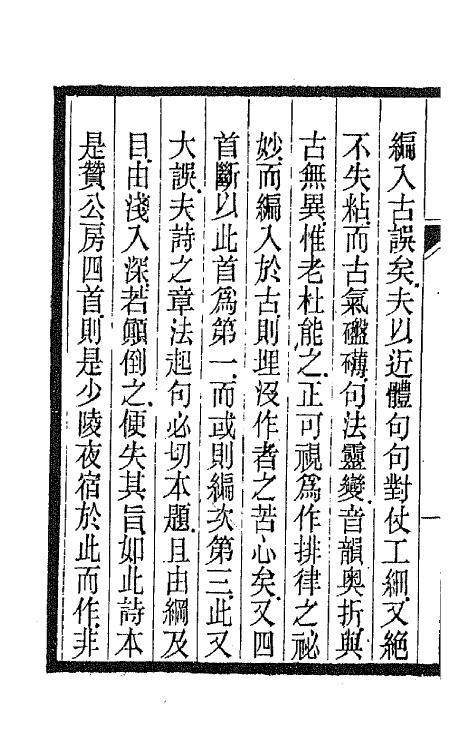 編入古誤矣夫以近體句句對仗工細又絕
不失粘而古氣礷礴句法靈變音韻奧折與
古無異惟老杜能之正可視爲作排律之祕
妙而編入於古則埋沒作者之苦心矣又四
首斷以此首爲第一而或則編次第三此又
大誤夫詩之章法起句必切本題且由綱及
目由淺入深若顚倒之便失其旨如此詩本
是贊公房四首則是少陵夜宿於此而作非